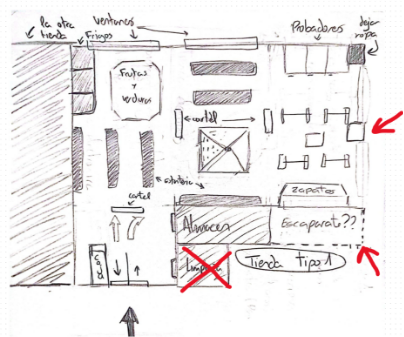 la otra
tienda
Frigos
ventanas
Probadores
dejar
ropa
Frutas
y
verduras
cartel
estanterias
cartel
zapatos
Almacen
Escaparate??
Caja
Limpieza
Tienda tipo 1